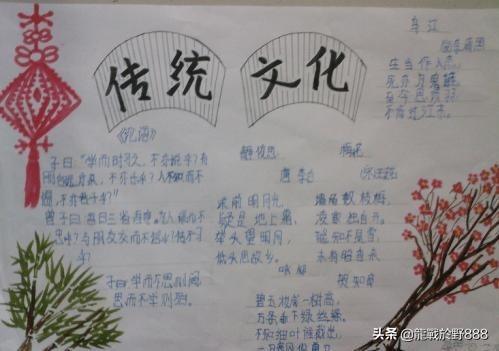 传统 文化
乌江
生当作人杰,
死亦为鬼雄
至今思项羽
不肯过江东。
《论语》
子曰:"学而时习之,不亦说乎?有
朋自远方来,不亦乐乎?人不知而不
愠,不亦君子乎?"
曾子曰:吾日三省吾身:为人谋而不
忠乎?与朋友交而不信乎?传不习
乎?
子曰:学而不思则罔,
思而不学则殆。
静夜思
唐 李白
床前明月光,
疑是地上霜,
举头望明月,
低头思故乡。
梅花
墙角数枝梅,
凌寒独自开。
遥知不是雪,
为有暗香来
咏柳
贺知章
碧玉妆成一树高,
万条垂下绿丝绦。
不知细叶谁裁出,
二月春风似剪刀
头条 @龍戰於野888